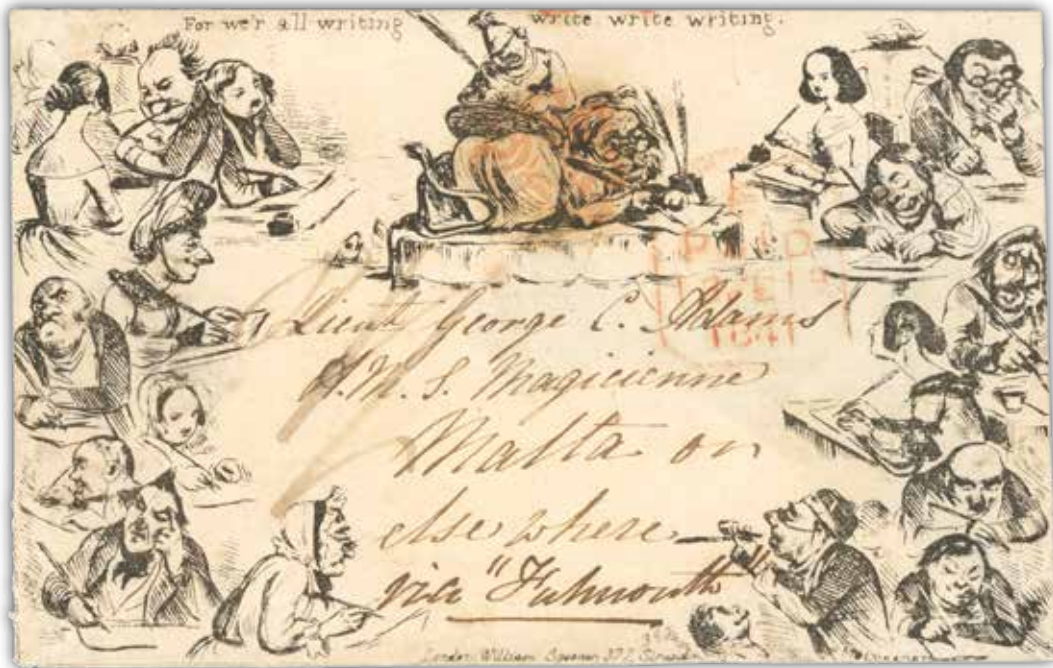 For we'r all writing write write writing.
PAID
1841
Lieut George C. Adams
H.M.S. Magicienne
Malta or
elsewhere
via "Falmouth"
London William Spooner 377, Strand